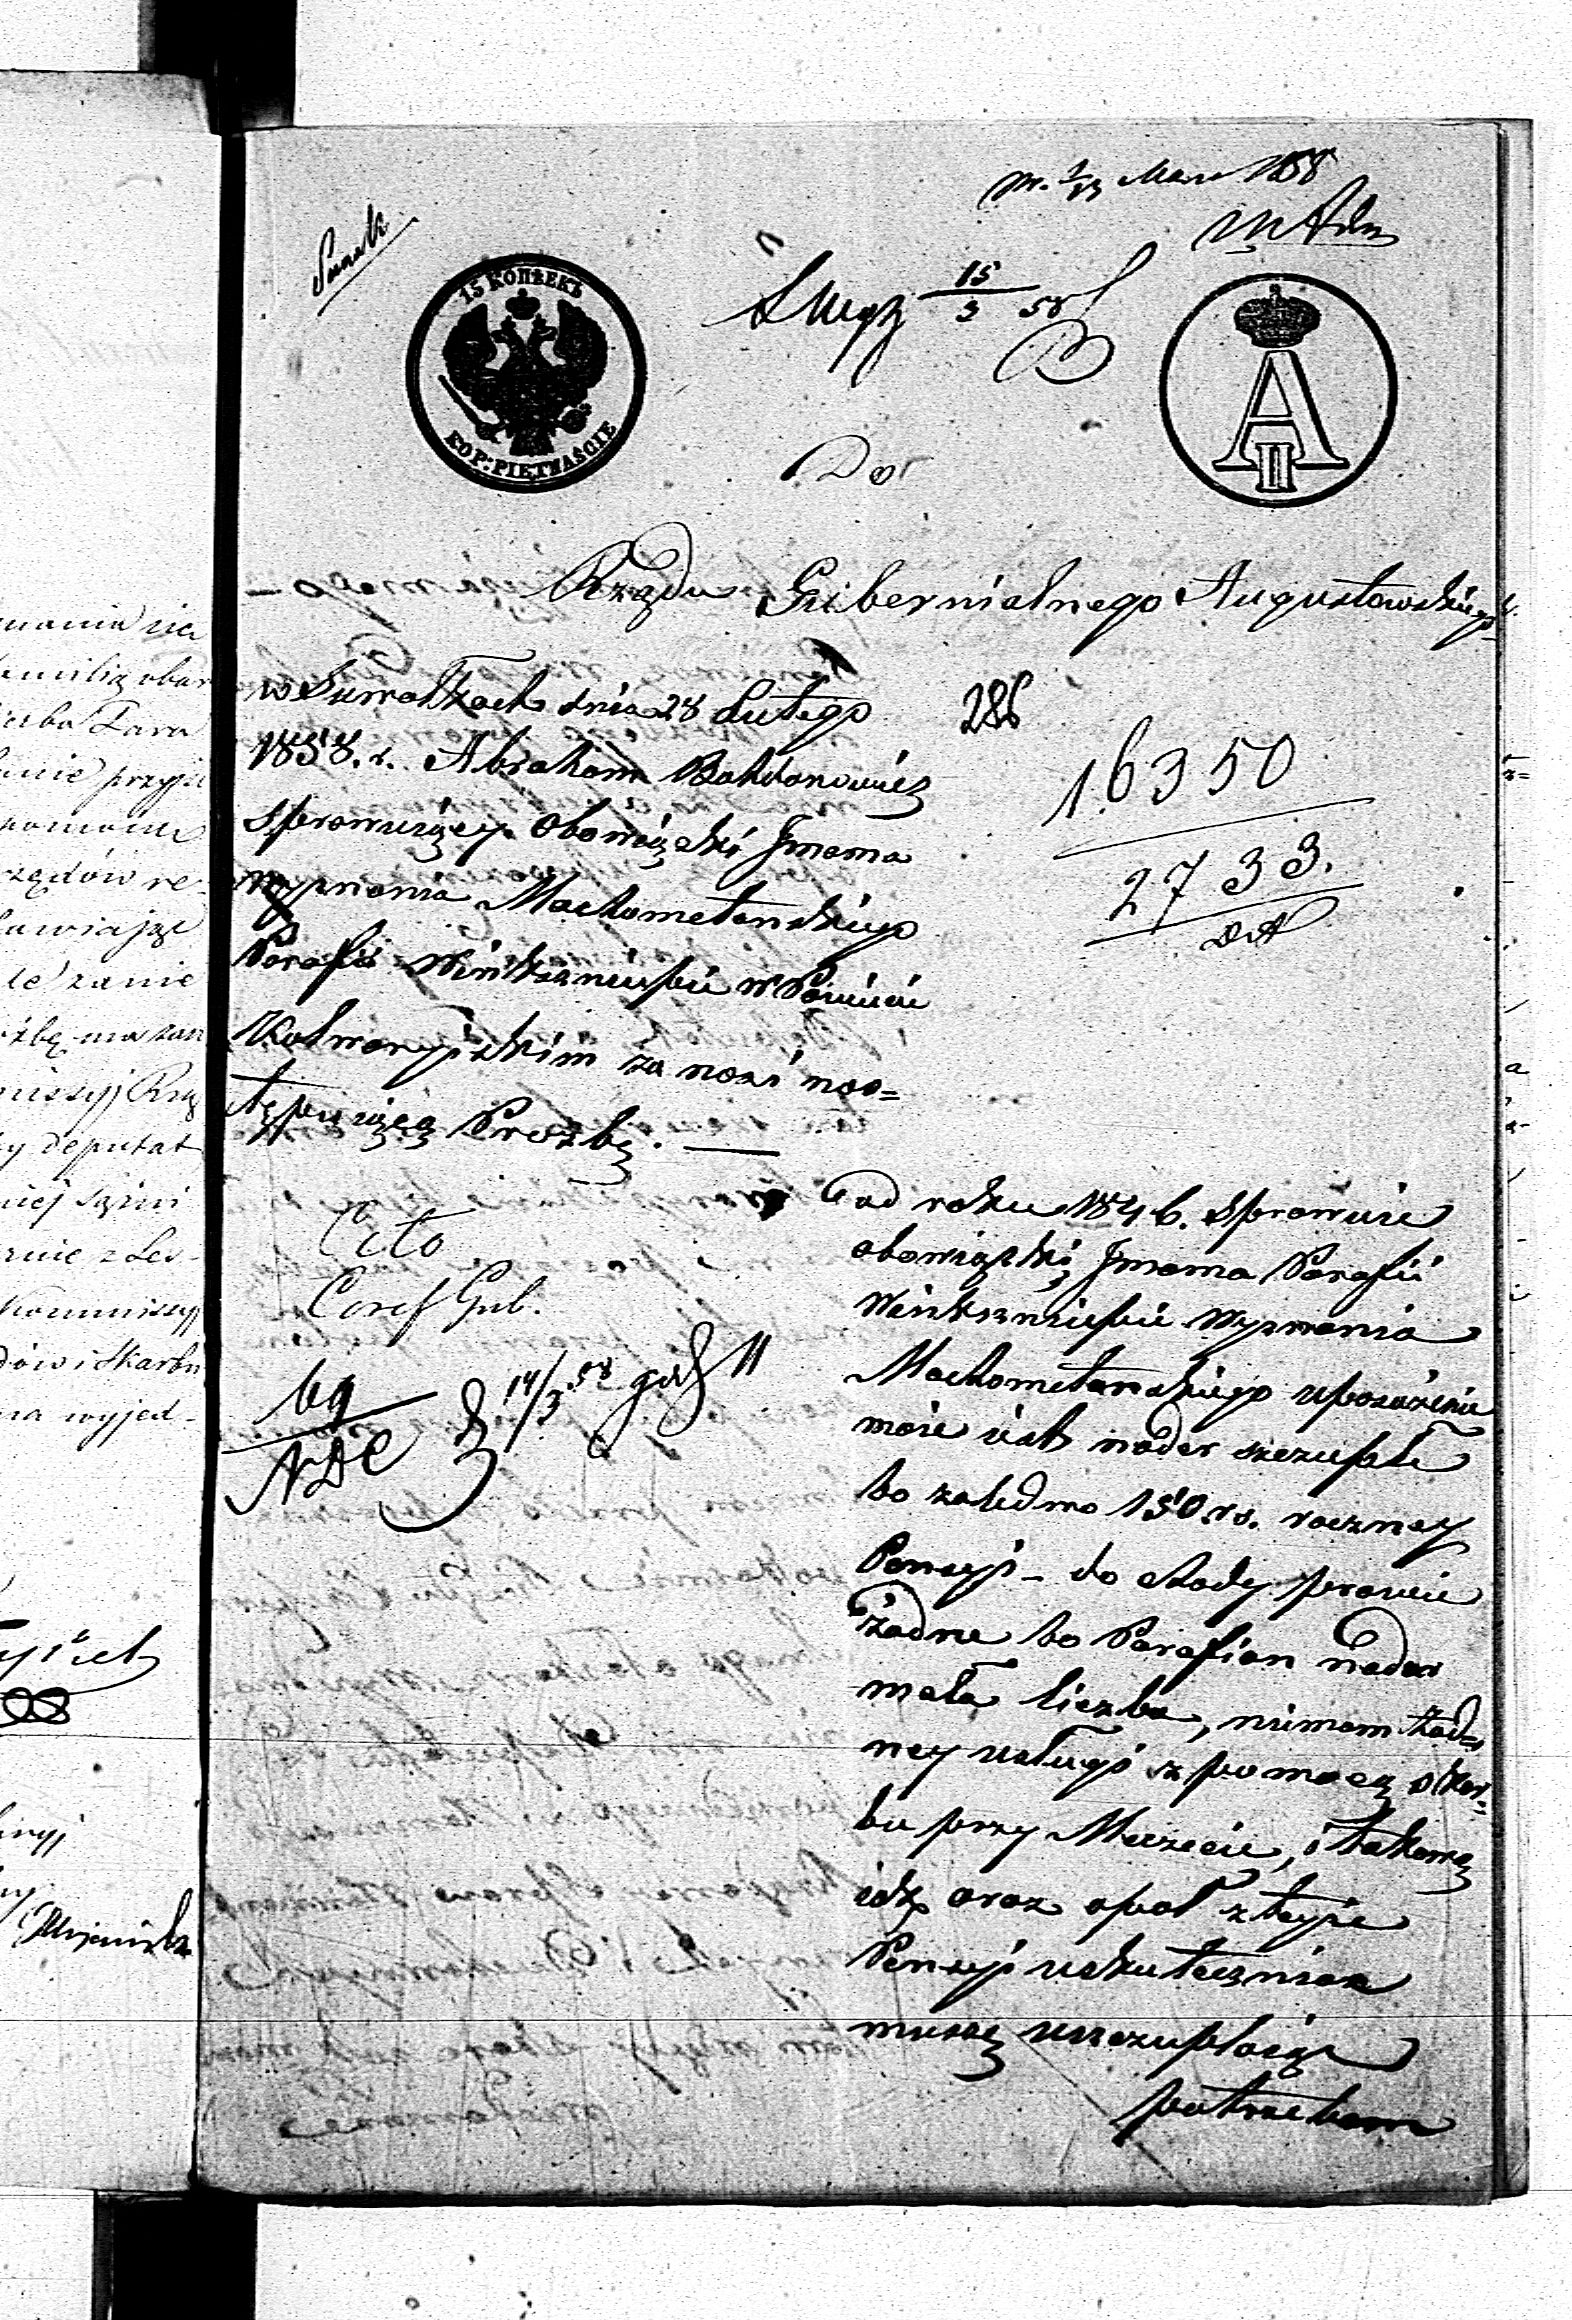 15 КОПѢЕКЪ
КОП: PIĘTNAŚCIE
A
II
15/3 58
Do
Rządu Gubernialnego Augustowskiego
w Suwałkach dnia 28 Lutego
1858. r. Abraham Bohdanowicz
sprawuiący obowiązki Jmama
wyznania Machometanskiego
Parafii Winksznupie w Powiecie
Kalwaryiskim zanosi nas=
tępuiącą Prozbę. —
286
16350
2733.
Cito
Coref Gub.
14/3 58 god 11
Od roku 1846. sprawuie
obowiązki Jmama Parafii
Winksznupie Wyznania
Machometanskiego uposażenie
moie iest nader szczupłe
bo zaledwo 150 rs. roczney
Pensyi – do chody prawie
żadne bo Parafian nader
mała liczba, niemam żad=
ney usługi z pomocą Skar=
bu przy Meczecie, i takową
idz oraz opał z teyże
Pensyi uskuteczniaz
muszę uszczuplaiąc
potrzebom
mania się
familią obar
przyję
rządów re-
awiając
te zanie
oźbę ma zan
missyj Rzą
y deputat
niej Sążni
rnie z Les-
Kommissyj
dów i Skarbu
na wyjed-